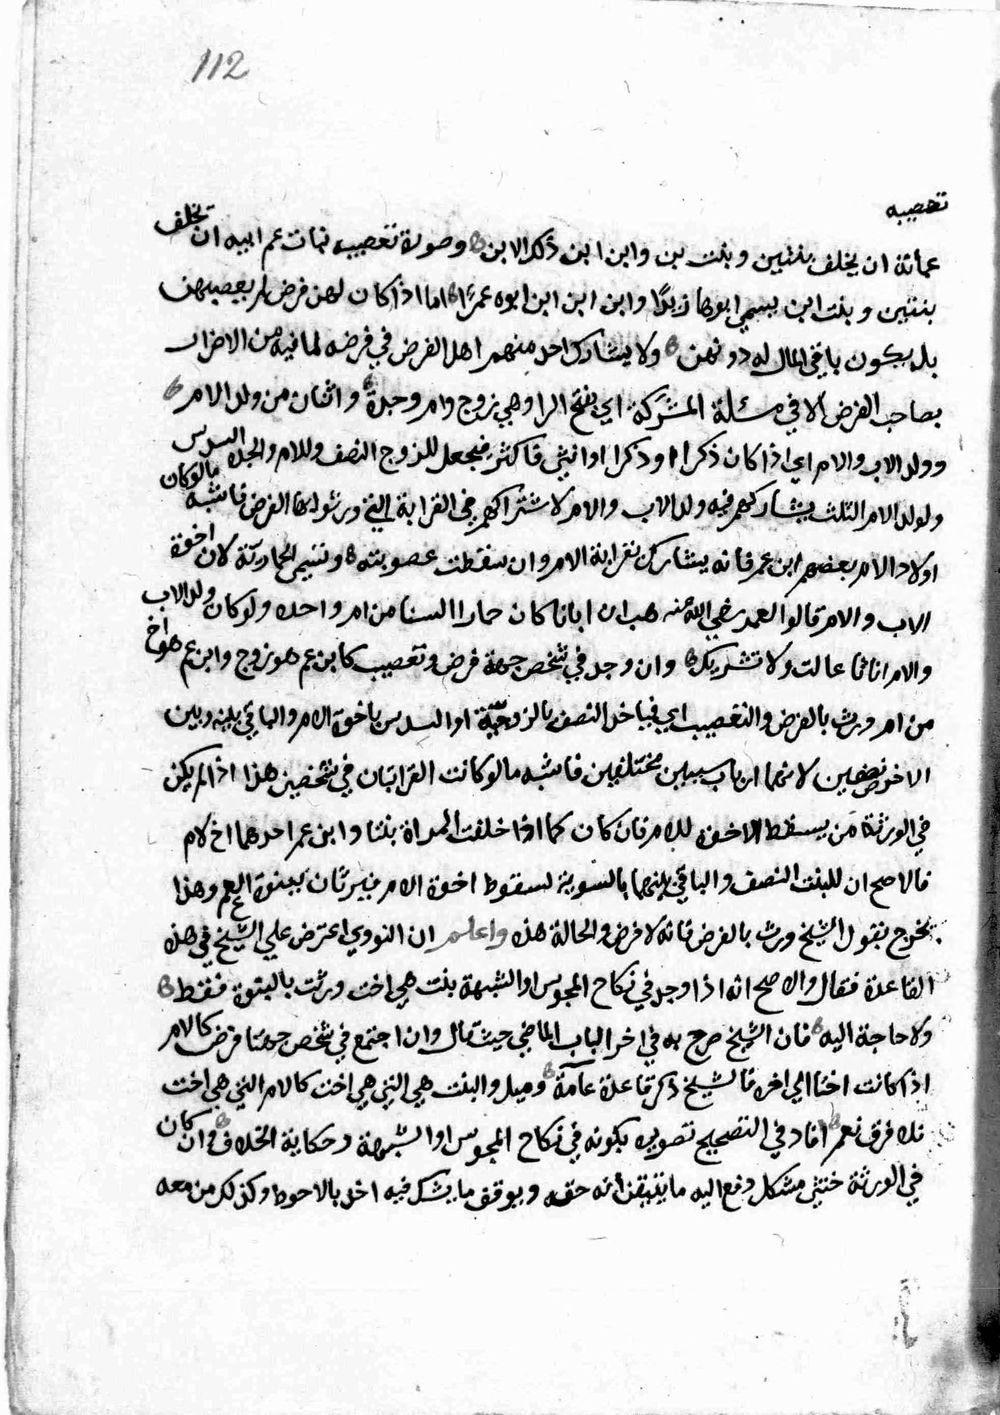 112
تعصيبه
عماته ان يخلف بنتين وبنت ابن وابن ابن ذلك الابن وصورة تعصيب بنات عم ابيه ان يخلف
بنتين وبنت ابن يسمي ابوها زيدا وابن ابن ابن ابوه عمرا اما اذا كان لهن فرض لم يعصبهن
بل يكون باقي المال له دونهن ولا يشارك احد منهم اهل الفرض في فرضه لما فيه من الاضرار
بصاحب الفرض الا في مسئلة المشركة اي بفتح الرا وهي زوج وام وجدة واثنان من ولد الام
وولد الاب والام اي اذا كان ذكرا او ذكرا وانثي فاكثر فيجعل للزوج النصف وللام والجدة السدس
ولولد الام الثلث يشاركهم فيه ولد الاب والام لاشتراكهم في القرابة التي ورثوا بها الفرض فاشبه مالوكان
اولاد الام بعضهم ابن عم فانه يشارك بقرابة الام وان سقطت عصوبته وتسمي الحمارية لان اخوة
الاب والام قالوا لعمر رضي الله عنه هب ان ابانا كان حمارا السنا من ام واحده ولوكان ولد الاب
والام اناثا عالت ولا تشريك وان وجد في شخص جهة فرض وتعصيب كابن عم هو زوج وابن عم هو اخ
من ام ورث بالفرض والتعصيب اي فياخذ النصف بالزوجية او السدس باخوة الام والباقي بينه وبين
الاخر نصفين لانهما ارباب سببين مختلفين فاشبه مالوكانت القرابتان في شخصين هذا اذا لم يكن
في الورثة من يسقط الاخوة للام فان كان كما اذا خلفت المراة بنتا وابن عم احدهما اخ لام
فالاصح ان للبنت النصف والباقي بينهما بالسوية لسقوط اخوة الام فيرثان ببنوة العم وهذا
يخرج بقول الشيخ ورث بالفرض فانه لا فرض والحالة هذه واعلم ان النووي اعترض علي الشيخ في هذه
القاعدة فقال والاصح انه اذا وجد في نكاح المجوس او الشبهة بنت هي اخت ورثت بالبنوة فقط
ولا حاجة اليه فان الشيخ صرح به في اخر الباب الماضي حيث قال وان اجتمع في شخص جهتا فرض كالام
اذا كانت اختا الي اخره فالشيخ ذكر قاعدة عامة ومثل والبنت هي التي هي اخت كالام التي هي اخت
فلا فرق نعم افاد في التصحيح تصويره بكونه في نكاح المجوس او الشبهة وحكاية الخلاف وان كان
في الورثة خنثي مشكل دفع اليه ما يتيقن انه حقه ويوقف ما يشك فيه اخذ بالاحوط وكذلك من معه